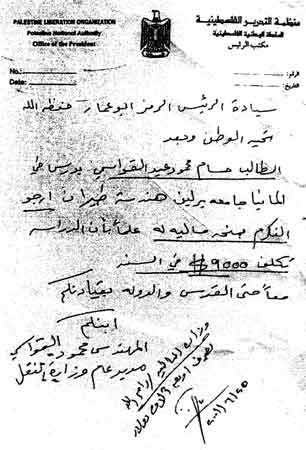 PALESTINE LIBERATION ORGANIZATION
Palestine National Authority
Office of the President
منظمة التحرير الفلسطينية
السلطة الوطنية الفلسطينية
مكتب الرئيس
No.:
Date:
الرقم:
التاريخ:
سيادة الرئيس الرمز ابو عمار حفظه الله
تحية الوطن وبعد
الطالب حسام محمود عبد القواسمي يدرس في
المانيا جامعة برلين هندسة طيران ارجو
التكرم منحه مالية له علماً بأن الدراسة
تكلف 9000$ في السنه
معاً حتى القدس والدولة بقيادتكم
ابنكم
المهندس محمود القواسمي
مدير عام وزارة النقل
وزارة المالية / رام الله
يصرف